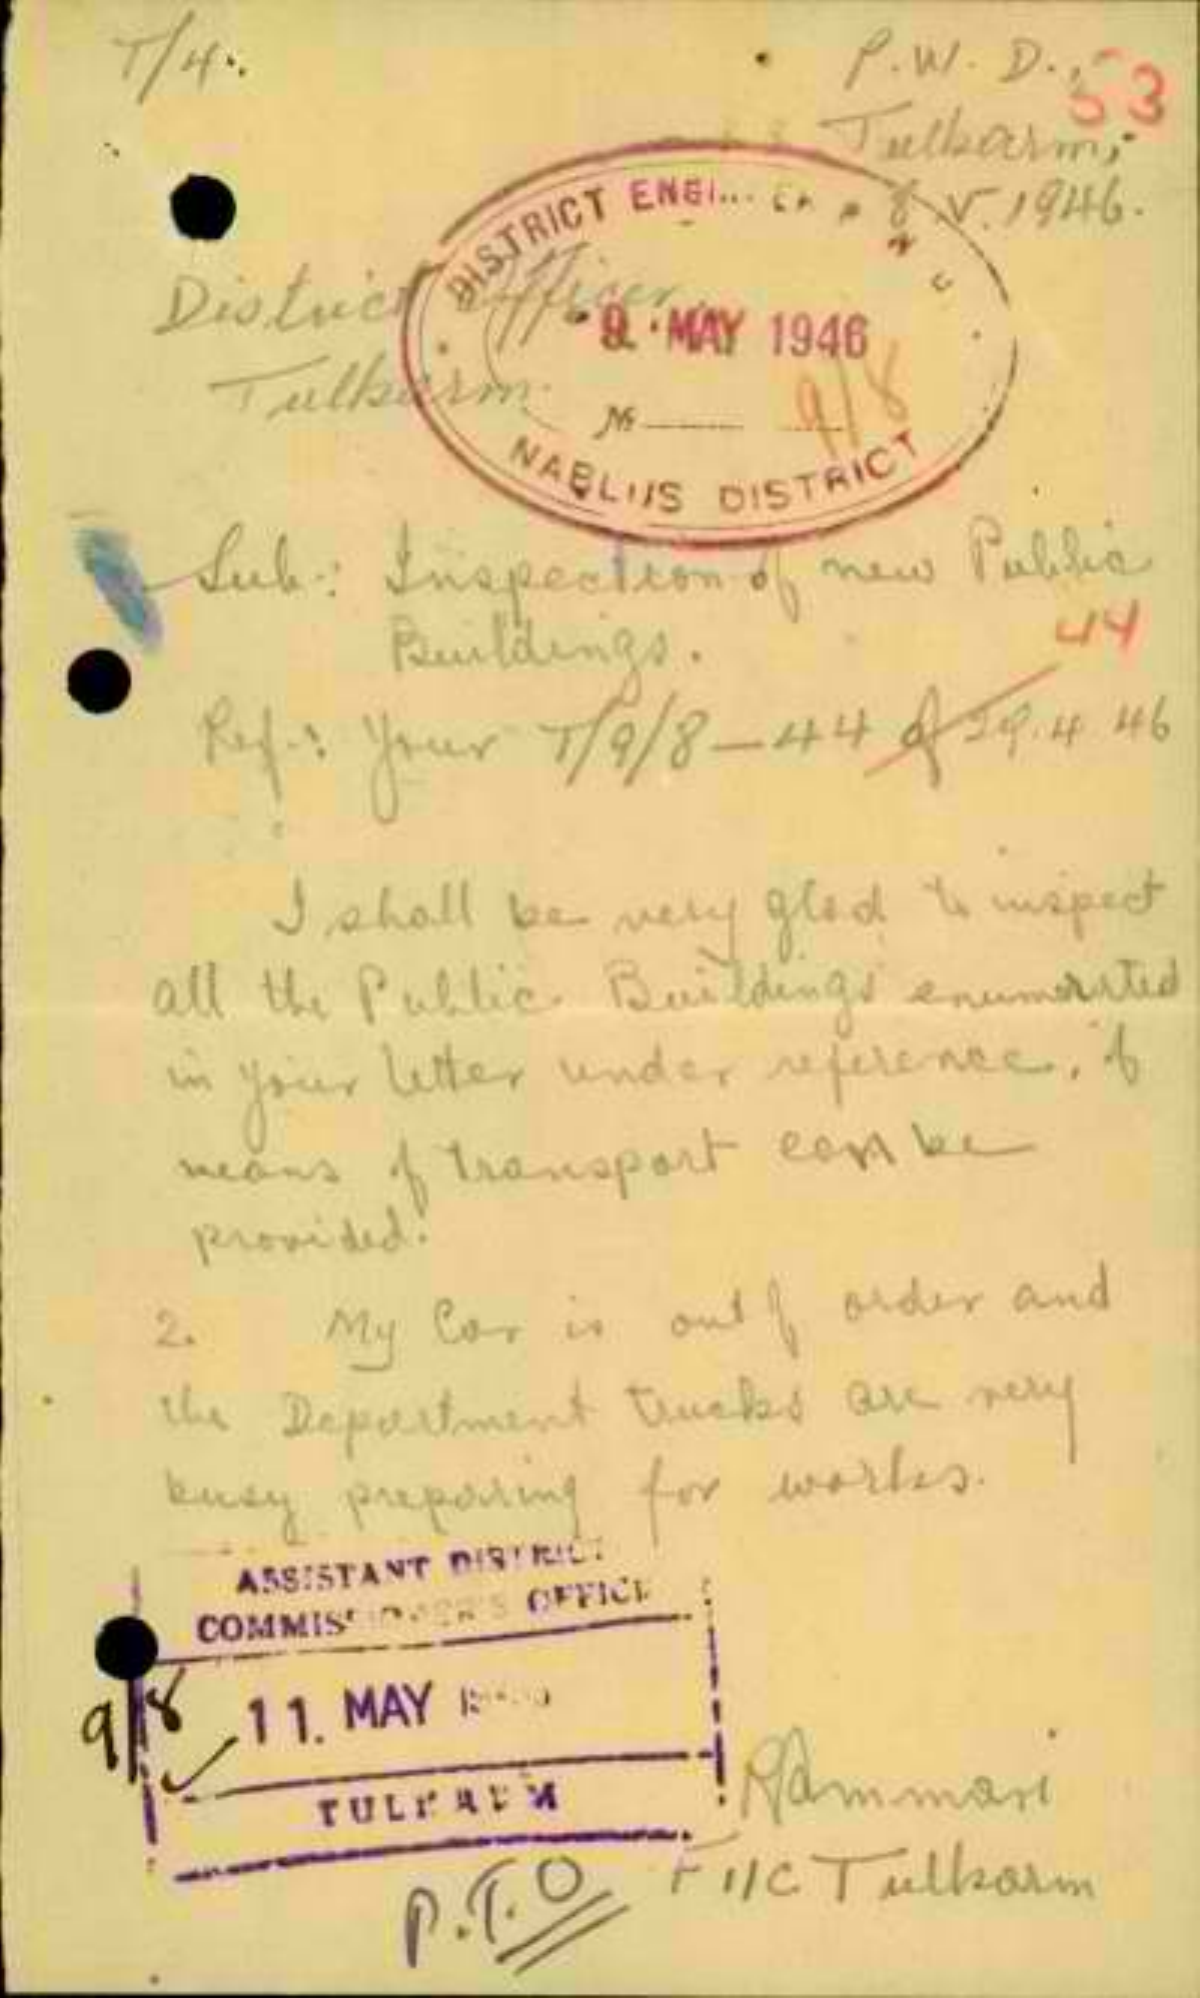 T/4.
P.W.D.,
53
Tulkarm,
8.V.1946.
DISTRICT
9 MAY 1946
№ 9/8
NABLUS DISTRICT
District Officer,
Tulkarm.
Sub.: Inspection of new Public
Buildings.
44
Ref.: Your T/9/8 — 44 of 29.4.46
I shall be very glad to inspect
all the Public Buildings enumerated
in your letter under reference, if
means of transport can be
provided.
2. My Car is out of order and
the Department trucks are very
busy preparing for works.
ASSISTANT DISTRICT
COMMISSIONER'S OFFICE
9/8
11. MAY
TULKARM
I/C Tulkarm
P.T.O